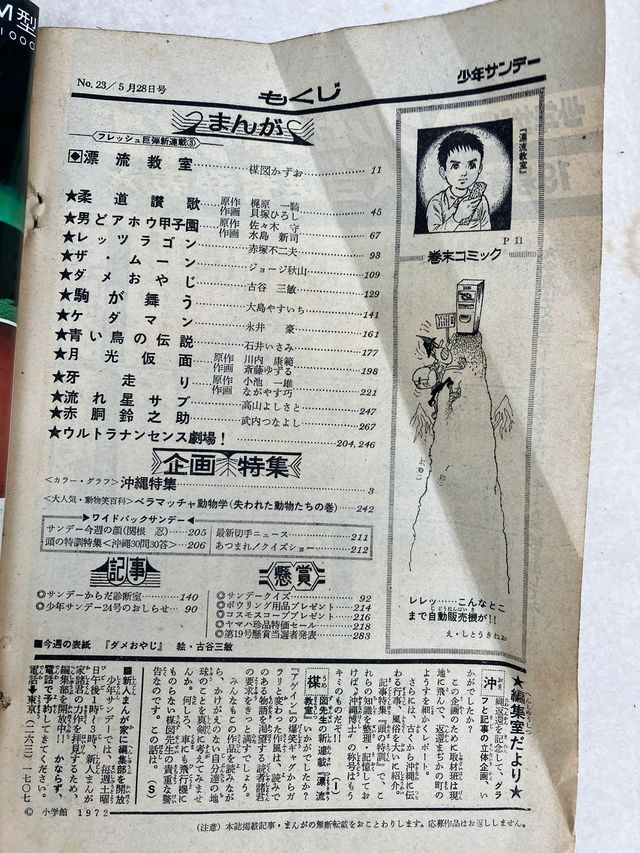 M型
1000
No. 23/5月28日号
もくじ
少年サンデー
まんが
フレッシュ巨弾新連載③
漂流教室……楳図かずお……11
★柔道讃歌 原作 梶原一騎 作画 貝塚ひろし……45
★男どアホウ甲子園 原作 佐々木守 作画 水島新司……67
★レッツラゴン……赤塚不二夫……93
★ザ・ムーン……ジョージ秋山……109
★ダメおやじ……古谷三敏……129
★駒が舞う……大島やすいち……141
★ケダマン……永井豪……161
★青い鳥の伝説……石井いさみ……177
★月光仮面 原作 川内康範 作画 斎藤ゆずる……198
★牙走り 原作 小池一雄 作画 ながやす巧……221
★流れ星サブ……高山よしさと……247
★赤胴鈴之助……武内つなよし……267
★ウルトラナンセンス劇場!……204,246
企画特集
<カラー・グラフ>沖縄特集……3
<大人気・動物笑百科>ベラマッチャ動物学(失われた動物たちの巻)……242
ワイドパックサンデー
サンデー今週の顔(関根 忍)……205
頭の特訓特集<沖縄30問30答>……206
最新切手ニュース……211
あつまれ!クイズショー……212
記事
◎サンデーからだ診断室……140
◎少年サンデー24号のおしらせ……90
懸賞
◎サンデークイズ……92
◎ボウリング用品プレゼント……214
◎コスモスコーププレゼント……216
◎ヤマハ珍品特価セール……218
◎第19号懸賞当選者発表……283
■今週の表紙 『ダメおやじ』 絵・古谷三敏
『漂流教室』
P 11
巻末コミック
レレッ……こんなとこ
まで自動販売機が!!
え・しとうきねお
★編集室だより★
沖縄返還を記念して、グラ
フと記事の立体企画、い
かがでしたか?
この企画のために取材班は現
地に飛んで、返還まぢかの町の
ようすを細かくレポート。
さらには、古くから沖縄に伝
わる行事、風俗を大いに紹介。
記事特集『頭の特訓』で、こ
れらの知識を整理・記憶してお
けば"沖縄博士"の称号はもう
キミのものだぞ! (I)
楳図先生の新連載『漂流
教室』いかがでしたか?
『アゲイン』の爆笑ギャグからガ
ラリと変わった作風は、読みで
のある物語を渇望する読者諸君
の要求をきっと満すでしょう。
みんなもこの作品を読みなが
ら、かけがえのない自分達の地
球のことを真剣に考えてみませ
んか。何しろ、車にも飛行機に
ものらない楳図先生の貴重な警
告なのです。この話は。 (S)
■新人まんが家に編集部を開放
少年サンデーでは、毎週土曜
日午後1時〜3時、新人まんが
家諸君の作品を拝見するため、
編集部を開放中!! かならず、
電話で予約してきてください。
電話➡東京(二六三)一七〇七
© 小学館 1972
(注意) 本誌掲載記事・まんがの無断転載をおことわりします。応募作品はお返ししません。